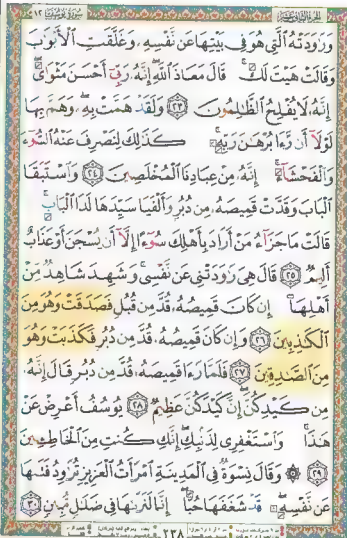 الجزء الثاني عشر
سورة يوسف ١٢
وَرَٰوَدَتْهُ ٱلَّتِي هُوَ فِي بَيْتِهَا عَن نَّفْسِهِۦ وَغَلَّقَتِ ٱلْأَبْوَٰبَ
وَقَالَتْ هَيْتَ لَكَ ۚ قَالَ مَعَاذَ ٱللَّهِ ۖ إِنَّهُۥ رَبِّيٓ أَحْسَنَ مَثْوَايَ ۖ
إِنَّهُۥ لَا يُفْلِحُ ٱلظَّٰلِمُونَ ٢٣ وَلَقَدْ هَمَّتْ بِهِۦ ۖ وَهَمَّ بِهَا
لَوْلَآ أَن رَّءَا بُرْهَٰنَ رَبِّهِۦ ۚ كَذَٰلِكَ لِنَصْرِفَ عَنْهُ ٱلسُّوٓءَ
وَٱلْفَحْشَآءَ ۚ إِنَّهُۥ مِنْ عِبَادِنَا ٱلْمُخْلَصِينَ ٢٤ وَٱسْتَبَقَا
ٱلْبَابَ وَقَدَّتْ قَمِيصَهُۥ مِن دُبُرٍ وَأَلْفَيَا سَيِّدَهَا لَدَا ٱلْبَابِ ۚ
قَالَتْ مَا جَزَآءُ مَنْ أَرَادَ بِأَهْلِكَ سُوٓءًا إِلَّآ أَن يُسْجَنَ أَوْ عَذَابٌ
أَلِيمٌ ٢٥ قَالَ هِيَ رَٰوَدَتْنِي عَن نَّفْسِي ۚ وَشَهِدَ شَاهِدٌ مِّنْ
أَهْلِهَآ إِن كَانَ قَمِيصُهُۥ قُدَّ مِن قُبُلٍ فَصَدَقَتْ وَهُوَ مِنَ
ٱلْكَٰذِبِينَ ٢٦ وَإِن كَانَ قَمِيصُهُۥ قُدَّ مِن دُبُرٍ فَكَذَبَتْ وَهُوَ
مِنَ ٱلصَّٰدِقِينَ ٢٧ فَلَمَّا رَءَا قَمِيصَهُۥ قُدَّ مِن دُبُرٍ قَالَ إِنَّهُۥ
مِن كَيْدِكُنَّ ۖ إِنَّ كَيْدَكُنَّ عَظِيمٌ ٢٨ يُوسُفُ أَعْرِضْ عَنْ
هَٰذَا ۚ وَٱسْتَغْفِرِي لِذَنۢبِكِ ۖ إِنَّكِ كُنتِ مِنَ ٱلْخَاطِـِٔينَ
٢٩ ۞ وَقَالَ نِسْوَةٌ فِي ٱلْمَدِينَةِ ٱمْرَأَتُ ٱلْعَزِيزِ تُرَٰوِدُ فَتَىٰهَا
عَن نَّفْسِهِۦ ۖ قَدْ شَغَفَهَا حُبًّا ۖ إِنَّا لَنَرَىٰهَا فِي ضَلَٰلٍ مُّبِينٍ ٣٠
٢٣٨